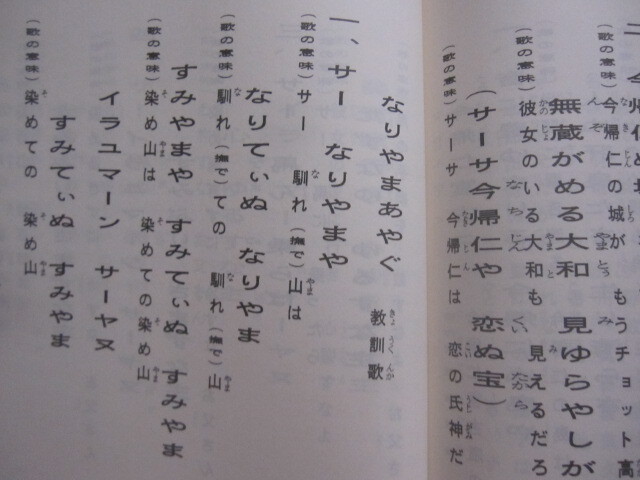 (歌の意味)今帰仁の城が もうチョット高
無蔵がめる大和 見ゆらやしが
(歌の意味)彼女のいる大和も 見えるだろ
(サーサ今帰仁や 恋ぬ宝)
(歌の意味)サーサ 今帰仁は 恋の氏神だ
なりやまあやぐ 教訓歌
一、サー なりやまや
(歌の意味)サー 馴れ(撫で)山は
なりてぃぬ なりやま
(歌の意味)馴れ(撫で)ての 馴れ(撫で)山
すみやまや すみてぃぬ すみやま
(歌の意味)染め山は 染めての染め山
イラユマーン サーヤヌ
すみてぃぬ すみやま
(歌の意味)染めての 染め山